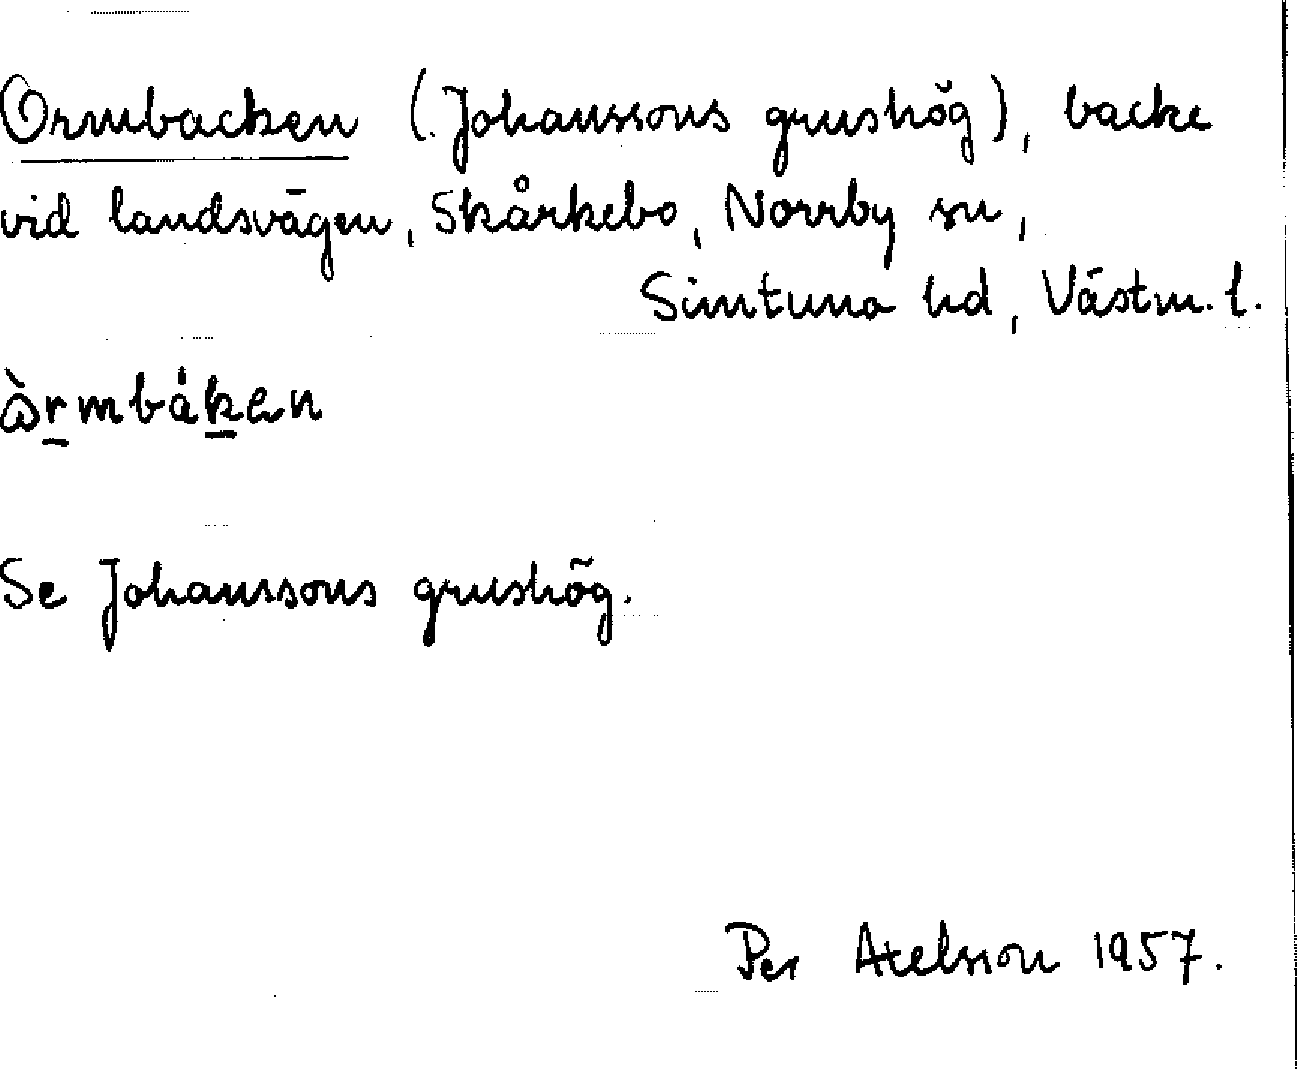 Ormbacken (Johanssons grushög), backe
vid landsvägen, Skårkebo, Norrby sn,
Simtuna hd, Västm. l.
Se Johanssons grushög.
Per Axelsson 1957.